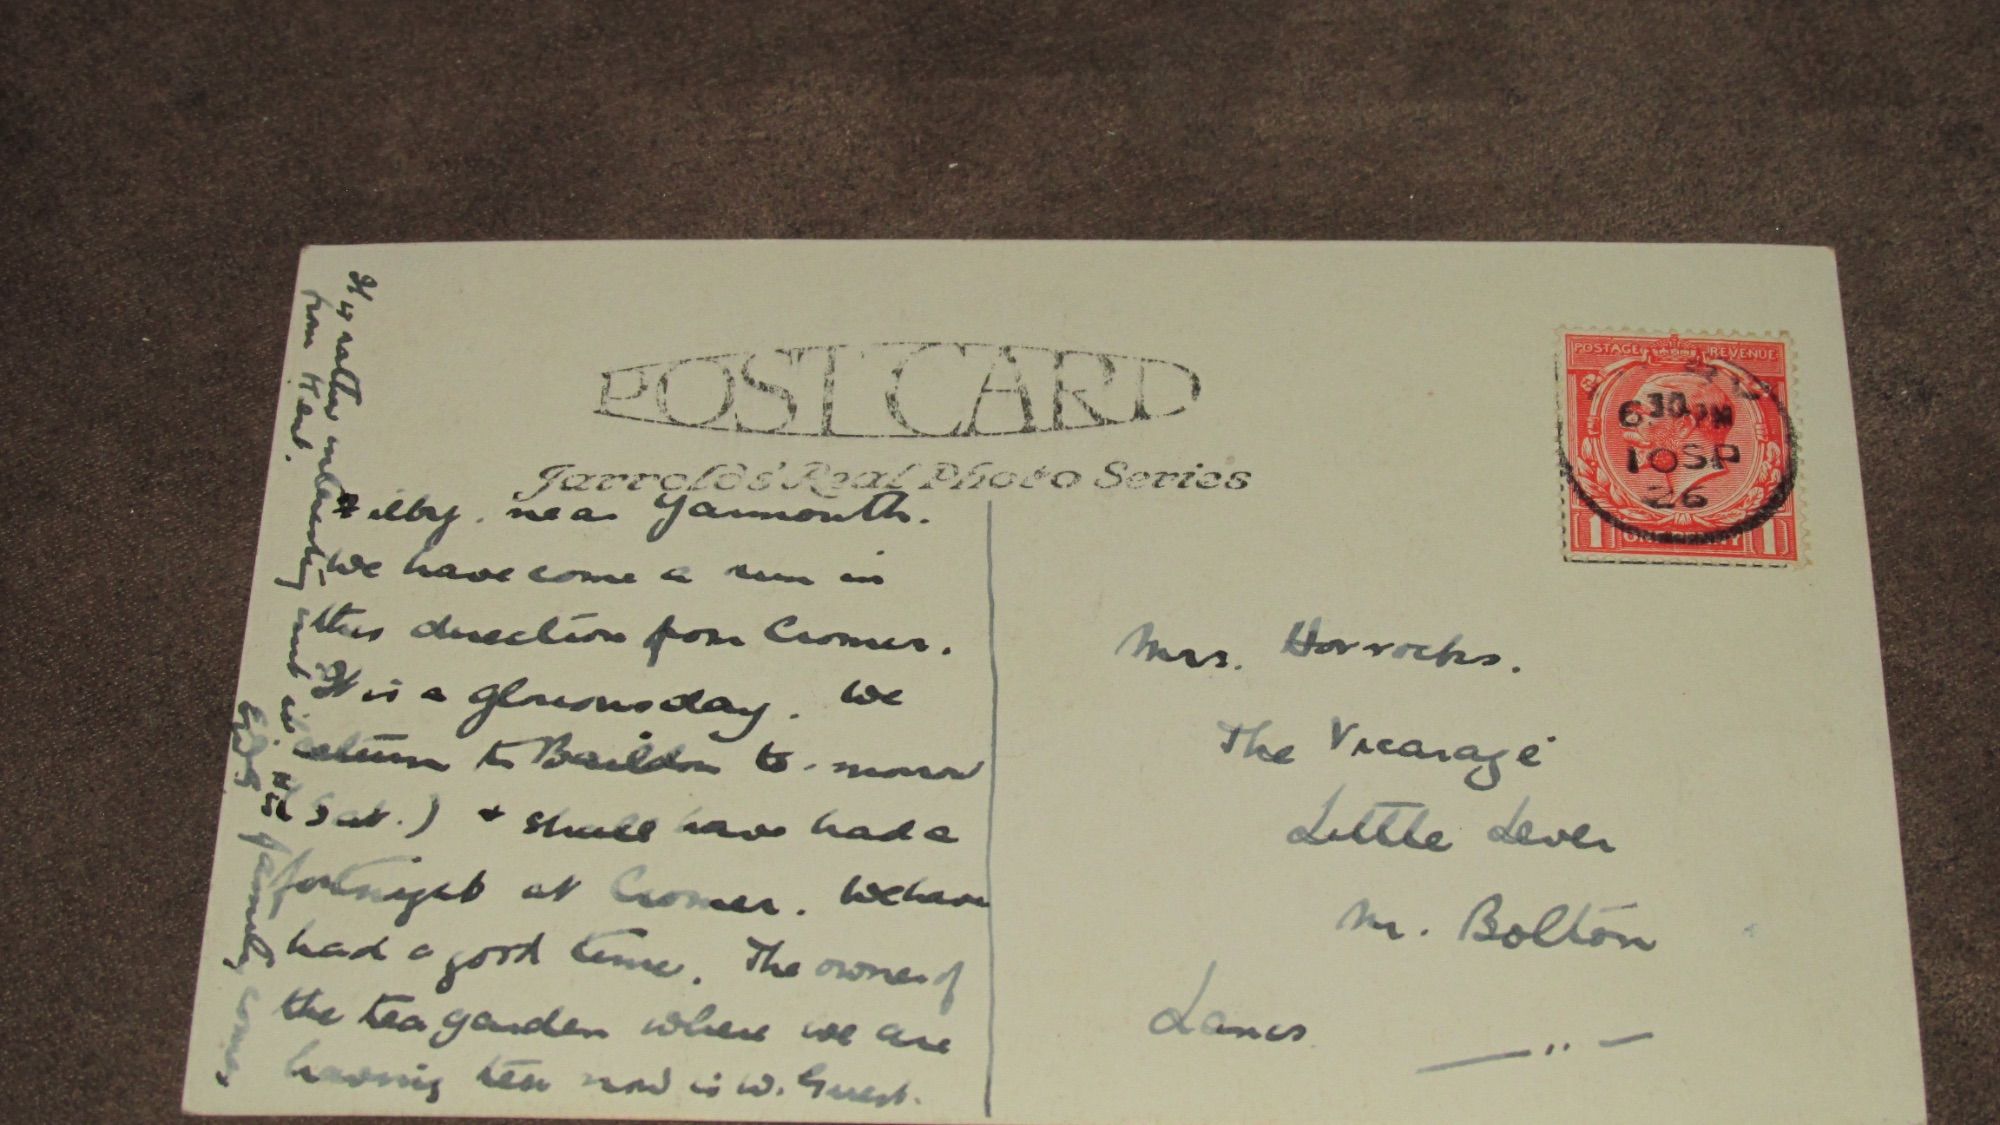 POST CARD
Jarrolds' Real Photo Series
POSTAGE REVENUE
6 30 PM
10 SP
26
1 ONE PENNY 1
Filby. near Yarmouth.
We have come a run in
this direction from Cromer.
It is a glorious day. We
return to Baildon to-morrow
(Sat.) + shall have had a
fortnight at Cromer. We have
had a good time. The owner of
the tea garden where we are
having tea now is W. Guest.
It is rather interesting and
family came
from Kent.
Mrs. Horrocks.
The Vicarage
Little Lever
Nr. Bolton
Lancs